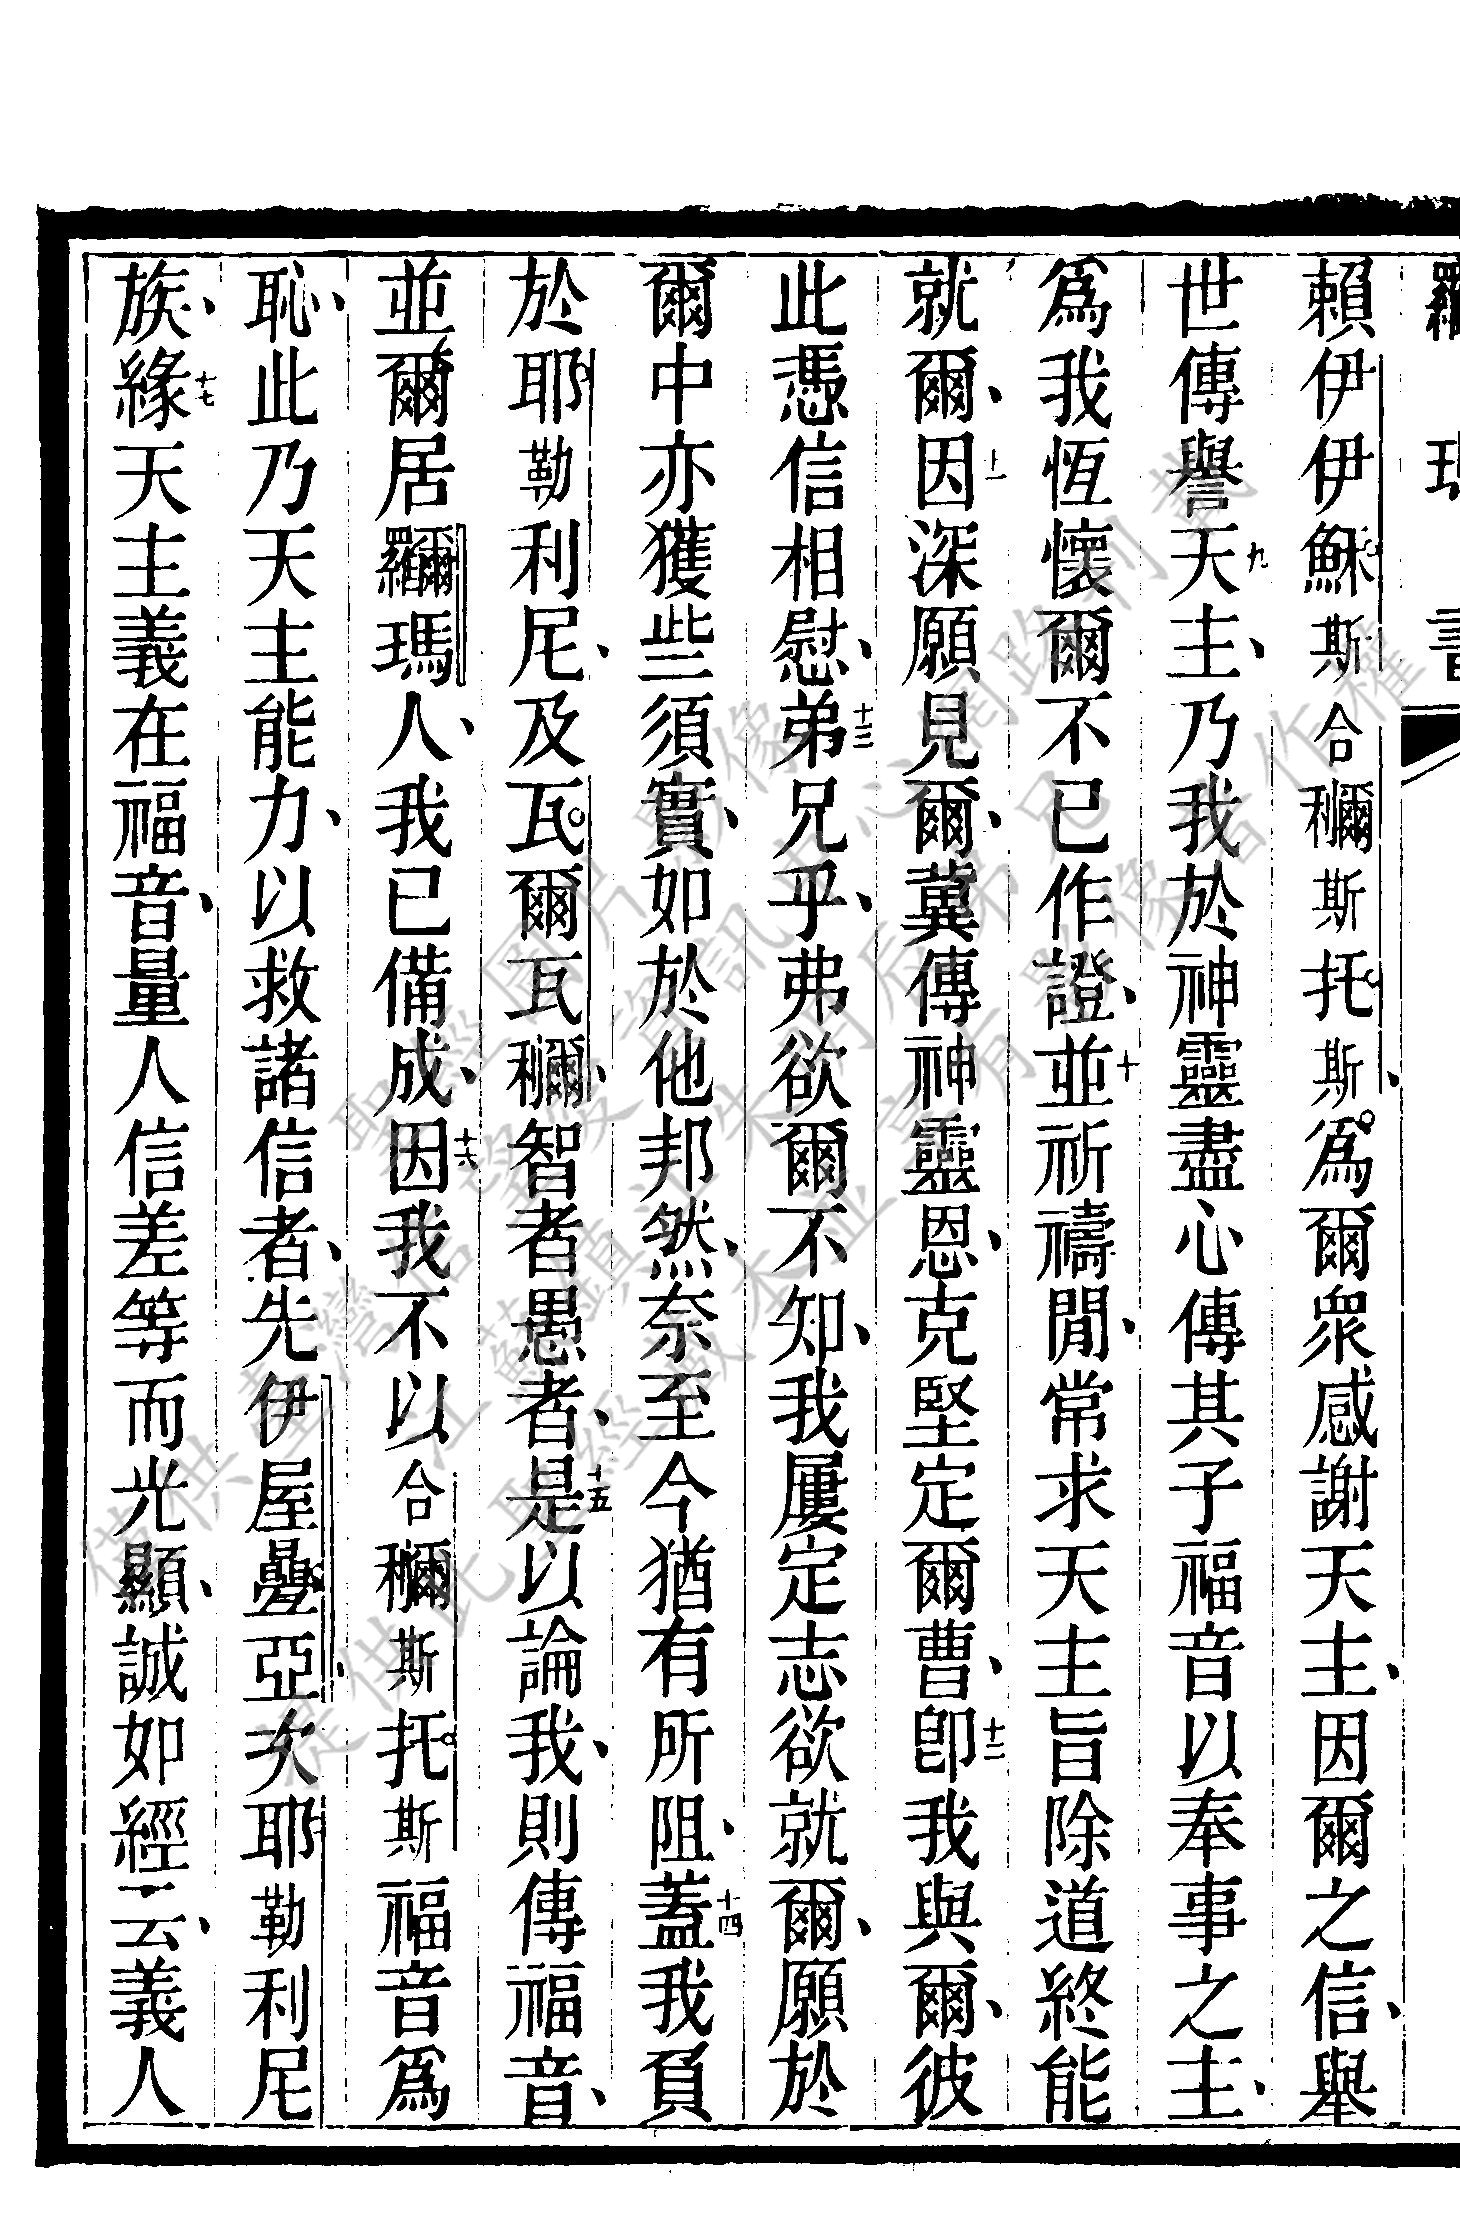 賴伊伊穌斯合𥠖斯托斯爲爾眾感謝天主、因爾之信、舉
世傳譽九天主、乃我於神靈盡心傳其子福音以奉事之主、
爲我恆懷爾不已作證、十並祈禱閒、常求天主旨除道終能
就爾、十一因深願見爾、冀傳神靈恩、克堅定爾曹、十二卽我與爾、彼
此憑信相慰、十三弟兄乎、弗欲爾不知、我屢定志欲就爾、願於
爾中亦獲些須實、如於他邦然、奈至今猶有所阻、十四蓋我負
於耶勒利尼、及瓦爾瓦𥠖、智者愚者、十五是以論我、則傳福音、
並爾居羅瑪人、我已備成、十六因我不以合𥠖斯托斯福音爲
恥、此乃天主能力、以救諸信者、先伊屋疊亞、次耶勒利尼
族、十七緣天主義在福音、量人信差等而光顯、誠如經云、義人